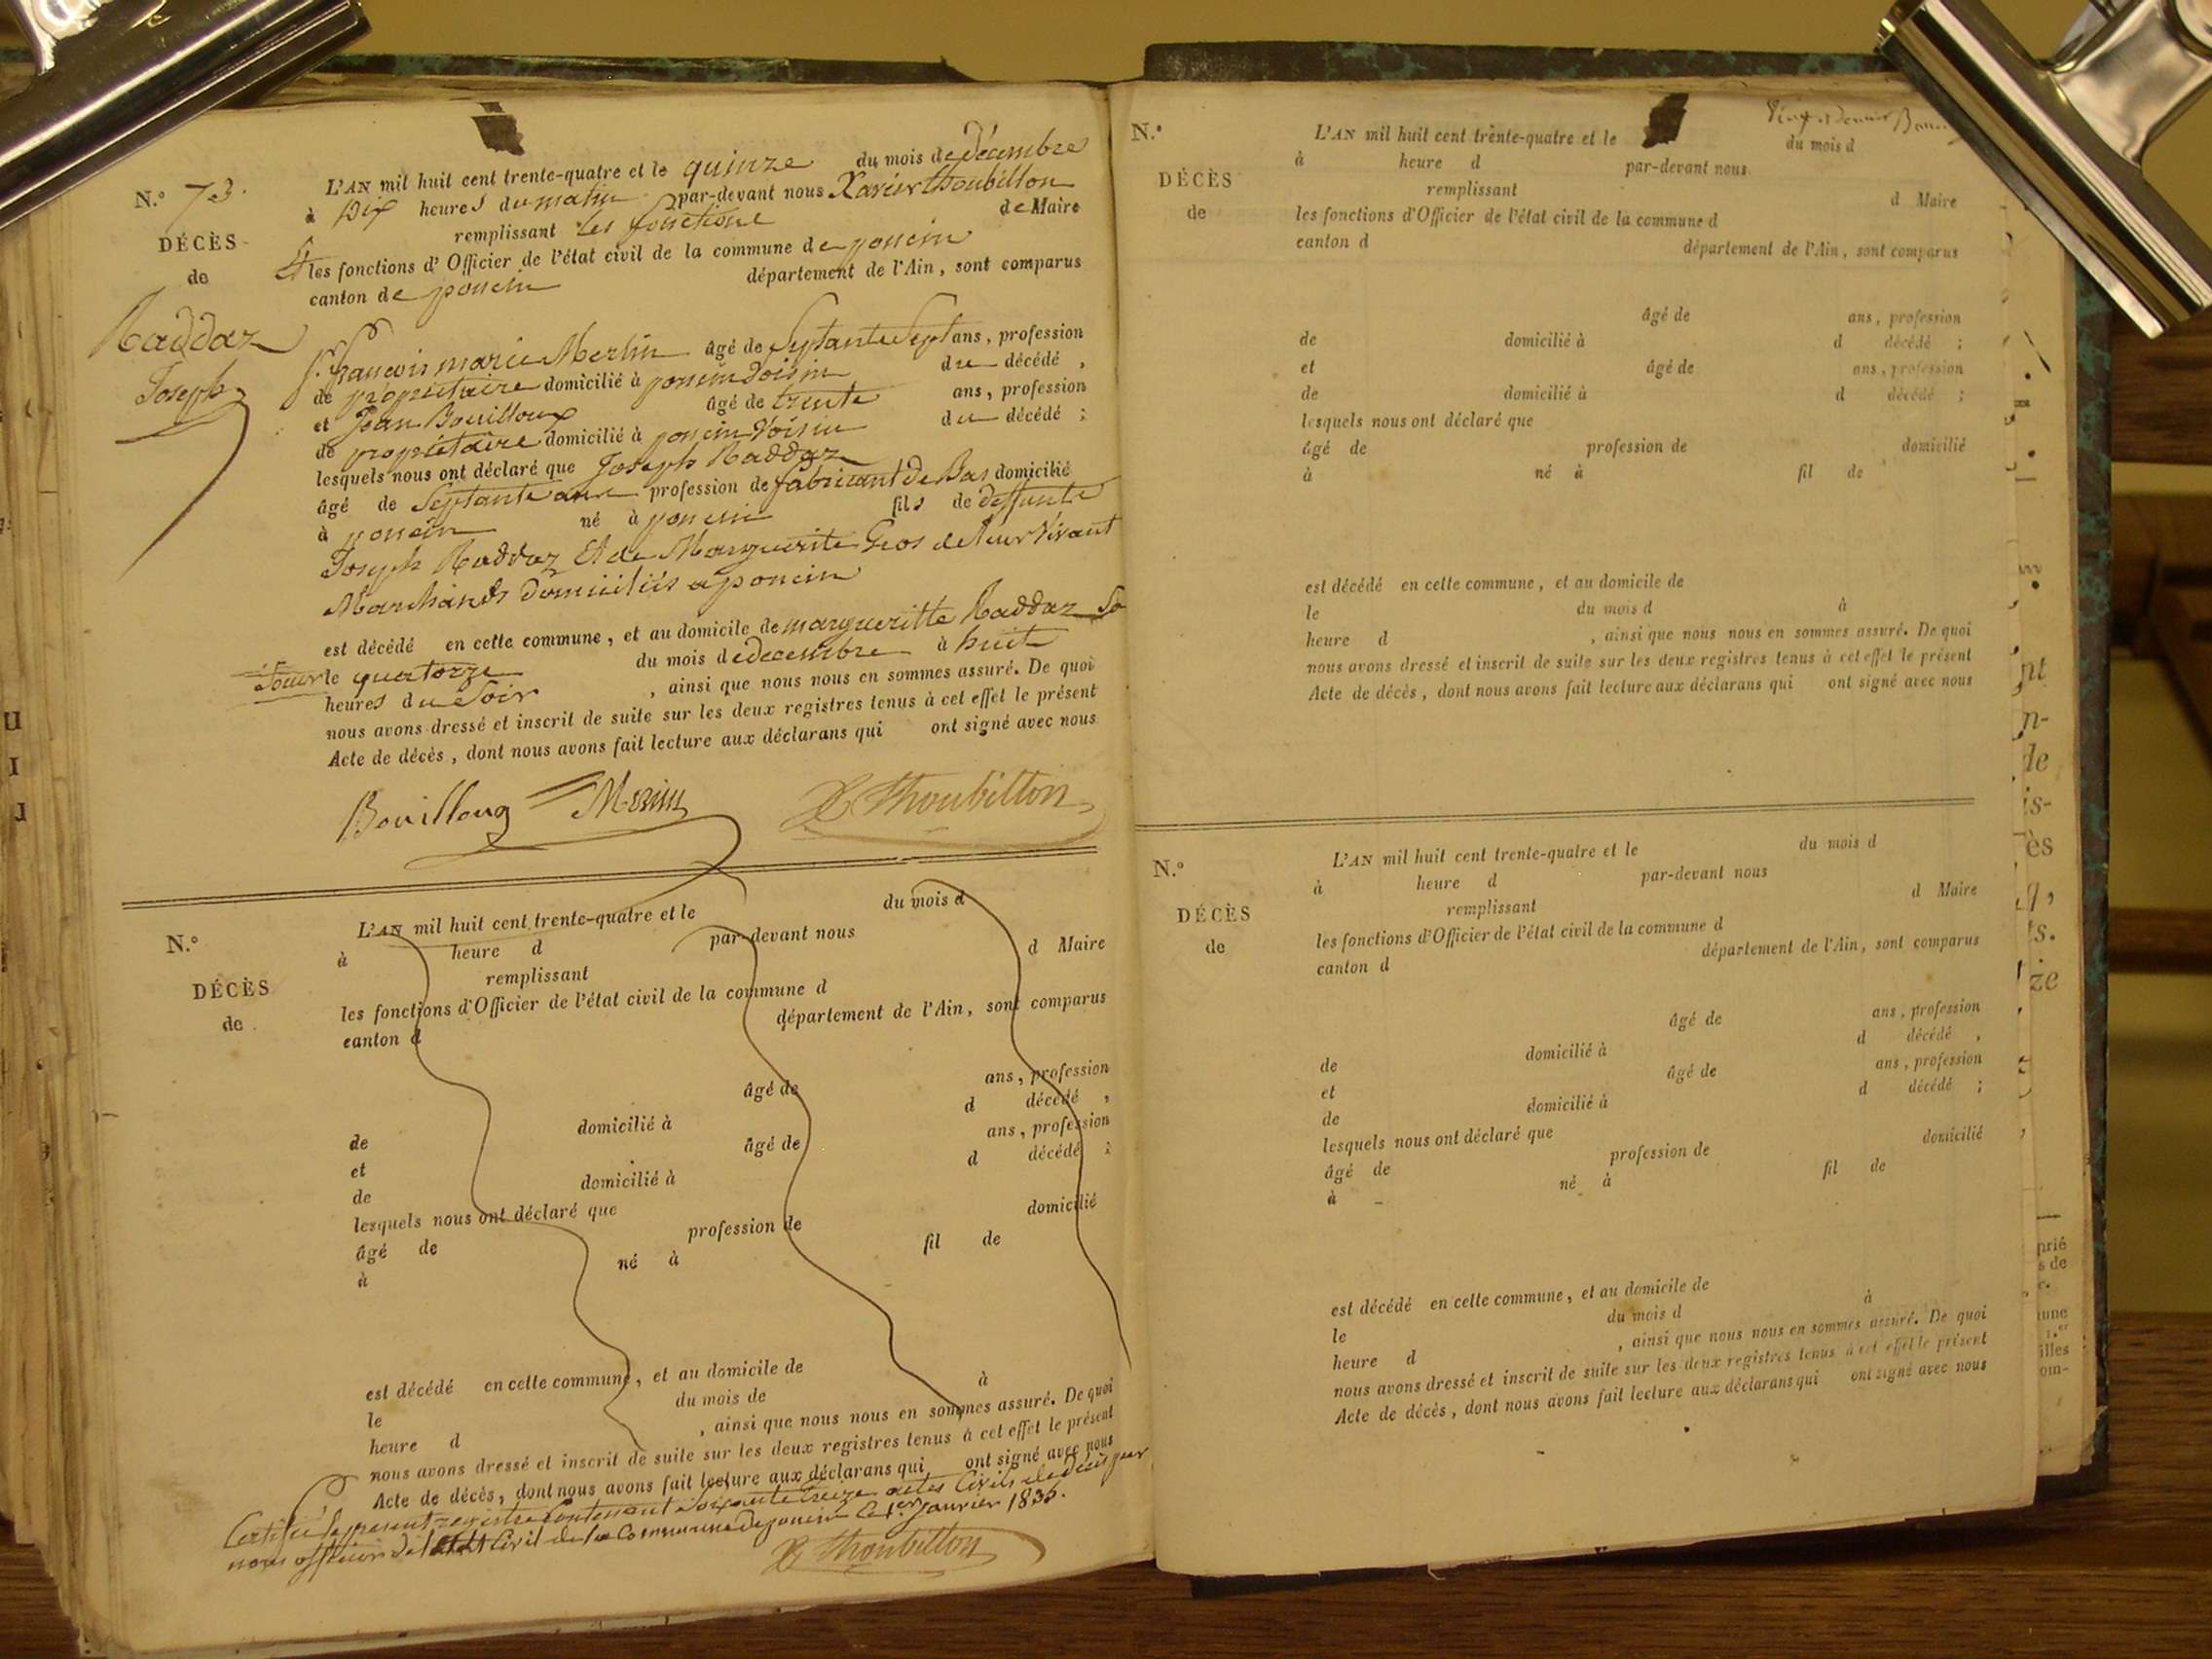 N.° 73.
DÉCÈS
de
Raddaz
Joseph
L'AN mil huit cent trente-quatre et le quinze du mois de décembre
à Dix heures du matin par-devant nous Xavier thoubillon
remplissant les fonctions de Maire
les fonctions d'Officier de l'état civil de la commune de poncin
canton de poncin département de l'Ain, sont comparus
françois marie Merlin âgé de Septante Sept ans, profession
de propriétaire domicilié à poncin voisin du décédé,
et Jean Bouilloux âgé de trente ans, profession
de propriétaire domicilié à poncin voisin du décédé;
lesquels nous ont déclaré que Joseph Raddaz
âgé de Septante ans profession de fabricant de Bas domicilié
à poncin né à poncin fils de deffunts
Joseph Raddaz Et de Marguerite Gros de leur vivant
Marchands domiciliés a poncin
est décédé en cette commune, et au domicile de margueritte Raddaz So
Soeur le quatorze du mois de decembre à huit
heures du Soir, ainsi que nous nous en sommes assuré. De quoi
nous avons dressé et inscrit de suite sur les deux registres tenus à cet effet le présent
Acte de décès, dont nous avons fait lecture aux déclarans qui ont signé avec nous
Bouilloux Merlin X Thoubillon
N.°
DÉCÈS
de
L'AN mil huit cent trente-quatre et le du mois d
à heure d par-devant nous
remplissant d Maire
les fonctions d'Officier de l'état civil de la commune d
canton d département de l'Ain, sont comparus
âgé de ans, profession
de domicilié à d décédé,
et âgé de ans, profession
de domicilié à d décédé;
lesquels nous ont déclaré que
âgé de profession de domicilié
à né à fil de
est décédé en cette commune, et au domicile de
le du mois de à
heure d , ainsi que nous nous en sommes assuré. De quoi
nous avons dressé et inscrit de suite sur les deux registres tenus à cet effet le présent
Acte de décès, dont nous avons fait lecture aux déclarans qui ont signé avec nous
Certifié le present registre Contenant Soixante treize actes Civils de décès par
nous officier de l'état Civil de la Commune de poncin Ce 1.er Janvier 1835.
X Thoubillon
N.°
DÉCÈS
de
L'AN mil huit cent trente-quatre et le du mois d
à heure d par-devant nous
remplissant d Maire
les fonctions d'Officier de l'état civil de la commune d
canton d département de l'Ain, sont comparus
âgé de ans, profession
de domicilié à d décédé;
et âgé de ans, profession
de domicilié à d décédé;
lesquels nous ont déclaré que
âgé de profession de domicilié
à né à fil de
est décédé en cette commune, et au domicile de
le du mois d à
heure d , ainsi que nous nous en sommes assuré. De quoi
nous avons dressé et inscrit de suite sur les deux registres tenus à cet effet le présent
Acte de décès, dont nous avons fait lecture aux déclarans qui ont signé avec nous
N.°
DÉCÈS
de
L'AN mil huit cent trente-quatre et le du mois d
à heure d par-devant nous
remplissant d Maire
les fonctions d'Officier de l'état civil de la commune d
canton d département de l'Ain, sont comparus
âgé de ans, profession
de domicilié à d décédé,
et âgé de ans, profession
de domicilié à d décédé;
lesquels nous ont déclaré que
âgé de profession de domicilié
à né à fil de
est décédé en cette commune, et au domicile de
le du mois d à
heure d , ainsi que nous nous en sommes assuré. De quoi
nous avons dressé et inscrit de suite sur les deux registres tenus à cet effet le présent
Acte de décès, dont nous avons fait lecture aux déclarans qui ont signé avec nous